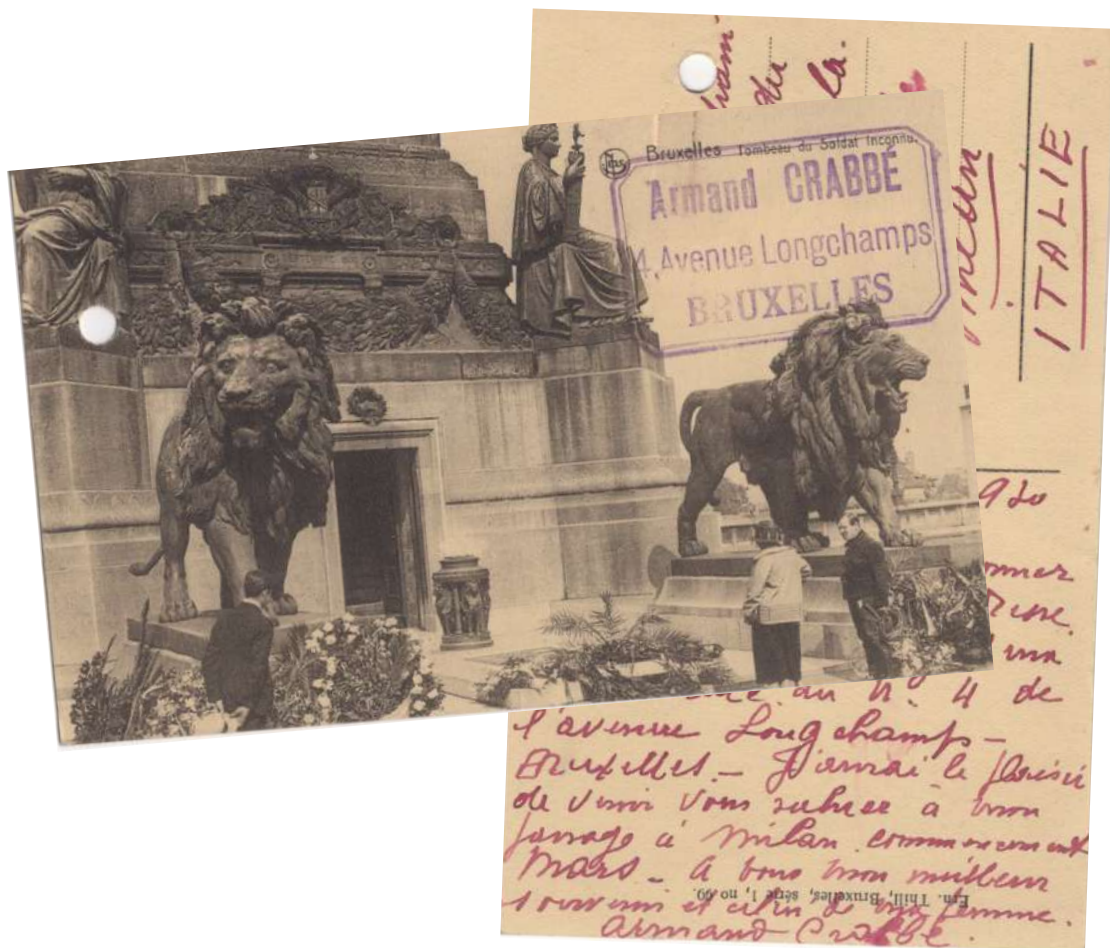 Bruxelles Tombeau du Soldat Inconnu.
Armand CRABBÉ
4, Avenue Longchamps
BRUXELLES
du
la.
ITALIE
au n° 4 de
l'avenue Longchamps –
Bruxelles – J'aurai le plaisir
de venir vous saluer à mon
passage à Milan commencement
Mars – A vous mon meilleur
souvenir et celui de ma femme.
Armand Crabbé.
Ern. Thill, Bruxelles, série 1, no 69.